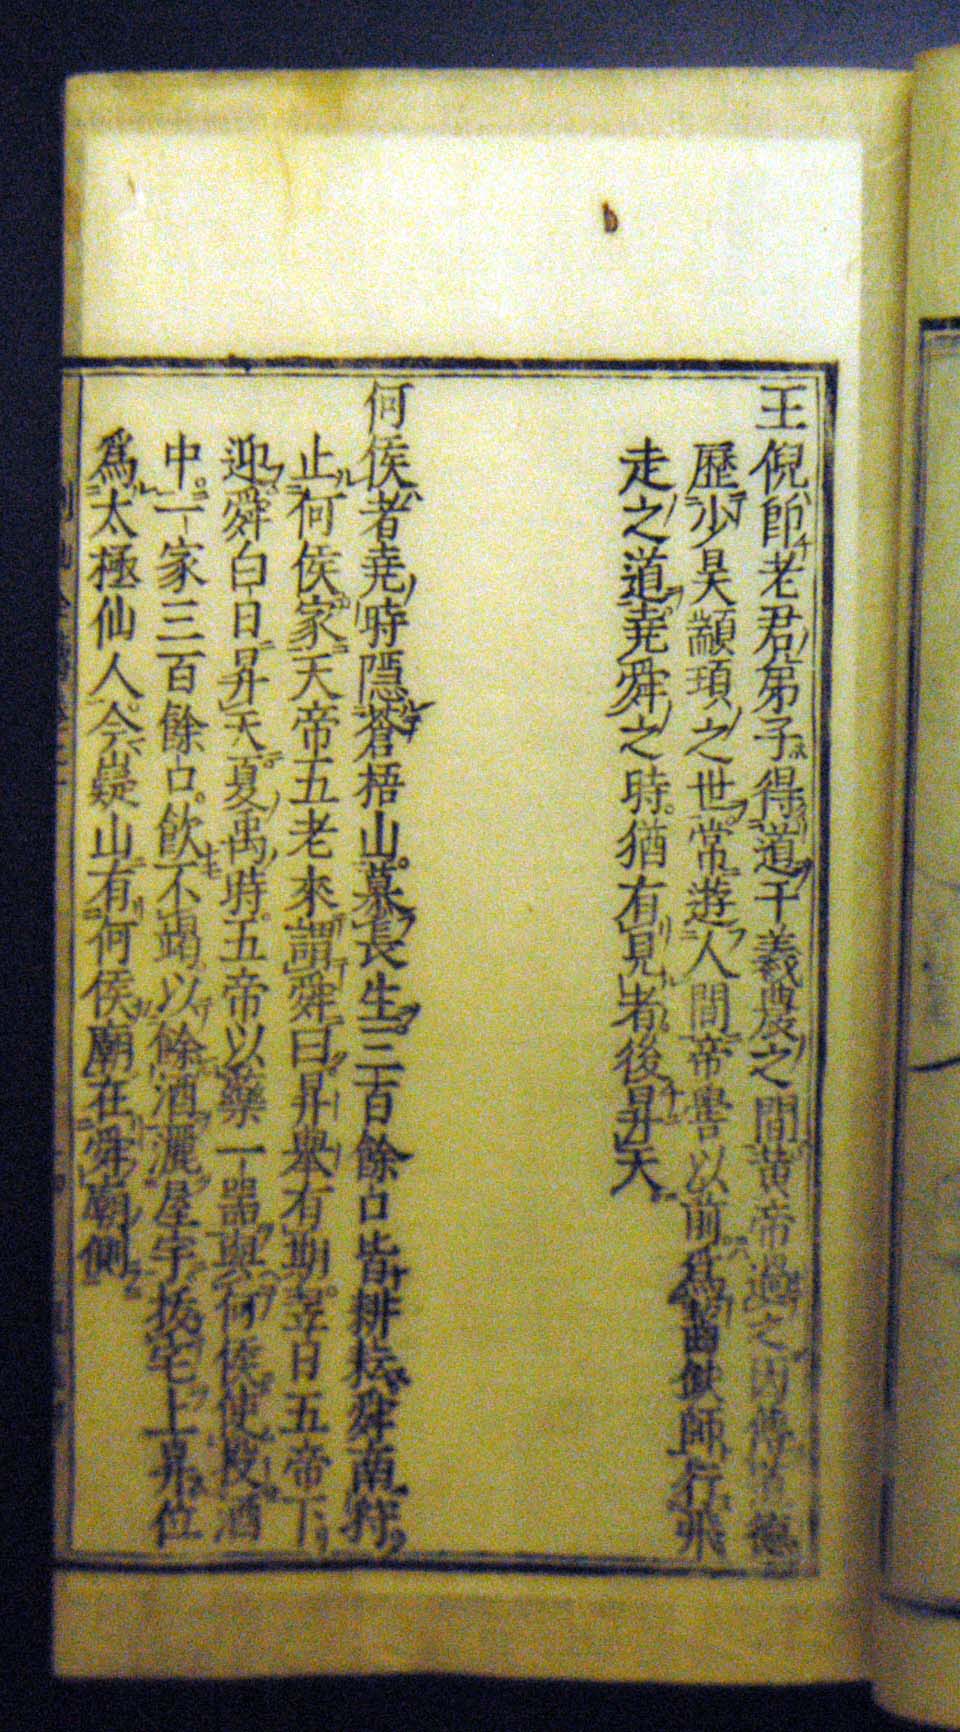 王倪師老君弟子得道于羲農之間黄帝過之因傳道德
歷少昊顓頊之世常遊人間帝嚳以前爲齧缺師行飛
走之道堯舜之時猶有見者後昇天
何侯者堯時隱蒼梧山慕長生三百餘口皆耕耘舜南狩
止何侯家天帝五老來謂舜曰昇舉有期翌日五帝下
迎舜白日昇天夏禹時五帝以藥一器與何侯使投酒
中一家三百餘口飲不竭以餘酒灑屋宇拔宅上昇位
爲太極仙人今嶷山有何侯廟在舜廟側